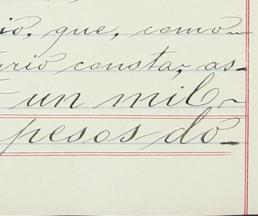 io, que, como
ario consta, as-
un mil
pesos do-